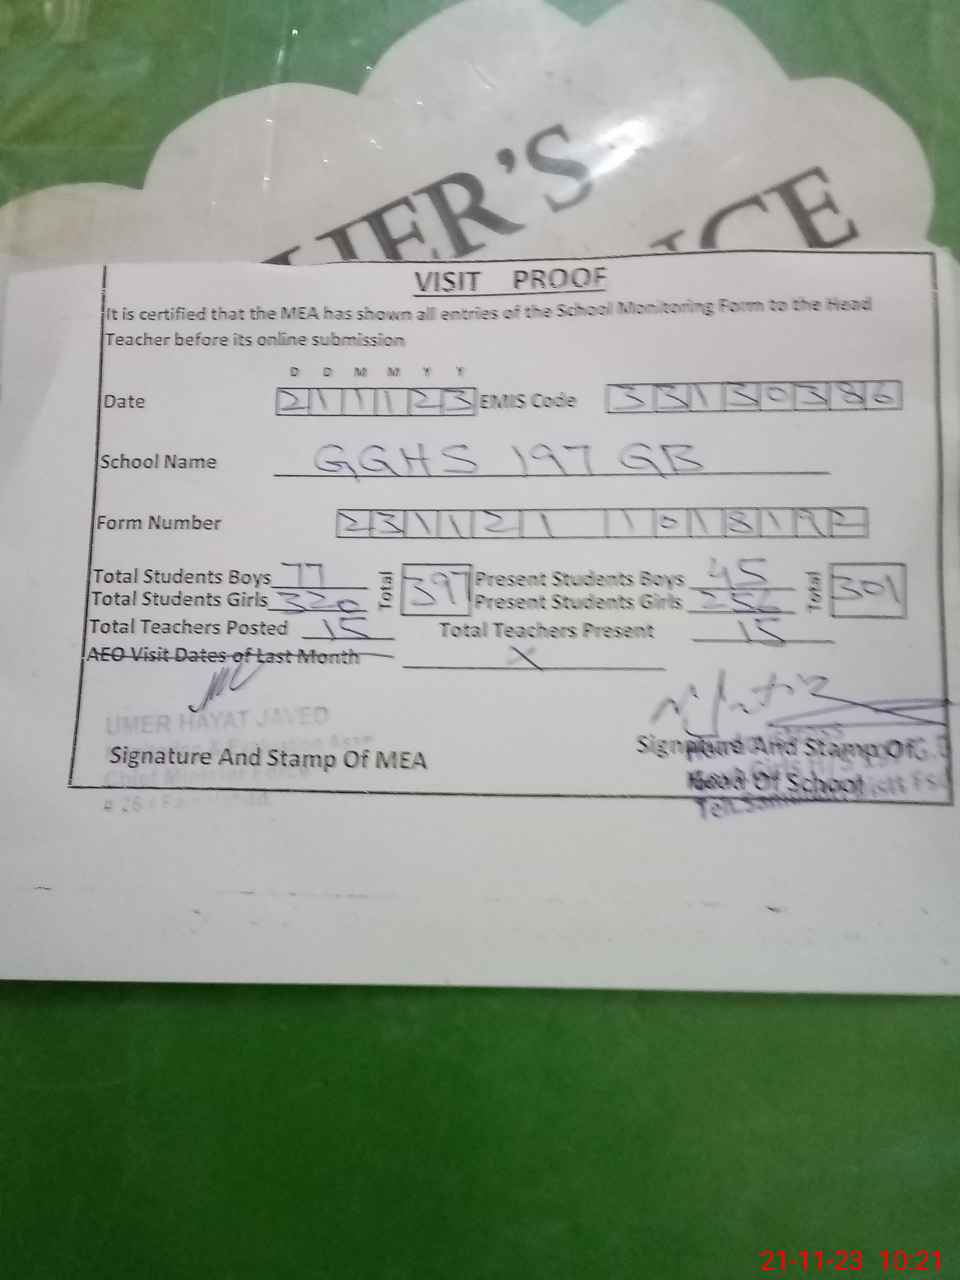 ER'S
CE
VISIT PROOF
It is certified that the MEA has shown all entries of the School Monitoring Form to the Head
Teacher before its online submission
D D M M Y Y
Date 211123 EMIS Code 33130386
School Name GGHS 197 GB
Form Number 231121 1018192
Total Students Boys 77 Total 397 Present Students Boys 45 Total 301
Total Students Girls 320 Present Students Girls 256
Total Teachers Posted 15 Total Teachers Present 15
AEO Visit Dates of Last Month X
UMER HAYAT JAVED
Signature And Stamp Of MEA
Signature And Stamp Of
Head Of School
21-11-23 10:21